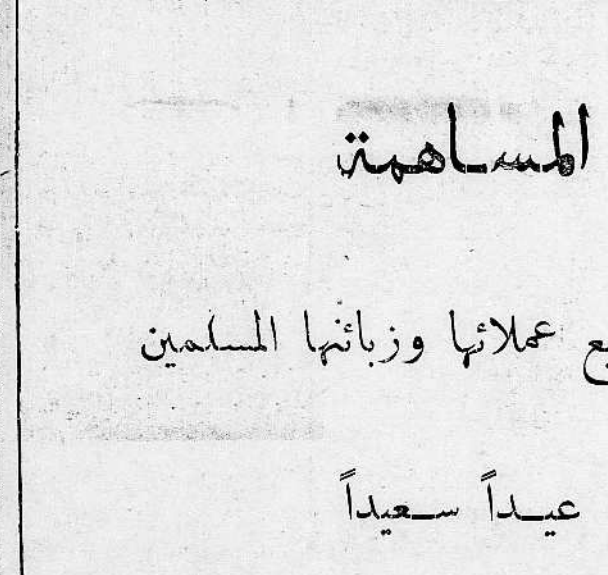 المساهمة
عملائها وزبائنها المسلمين
عيداً سعيداً